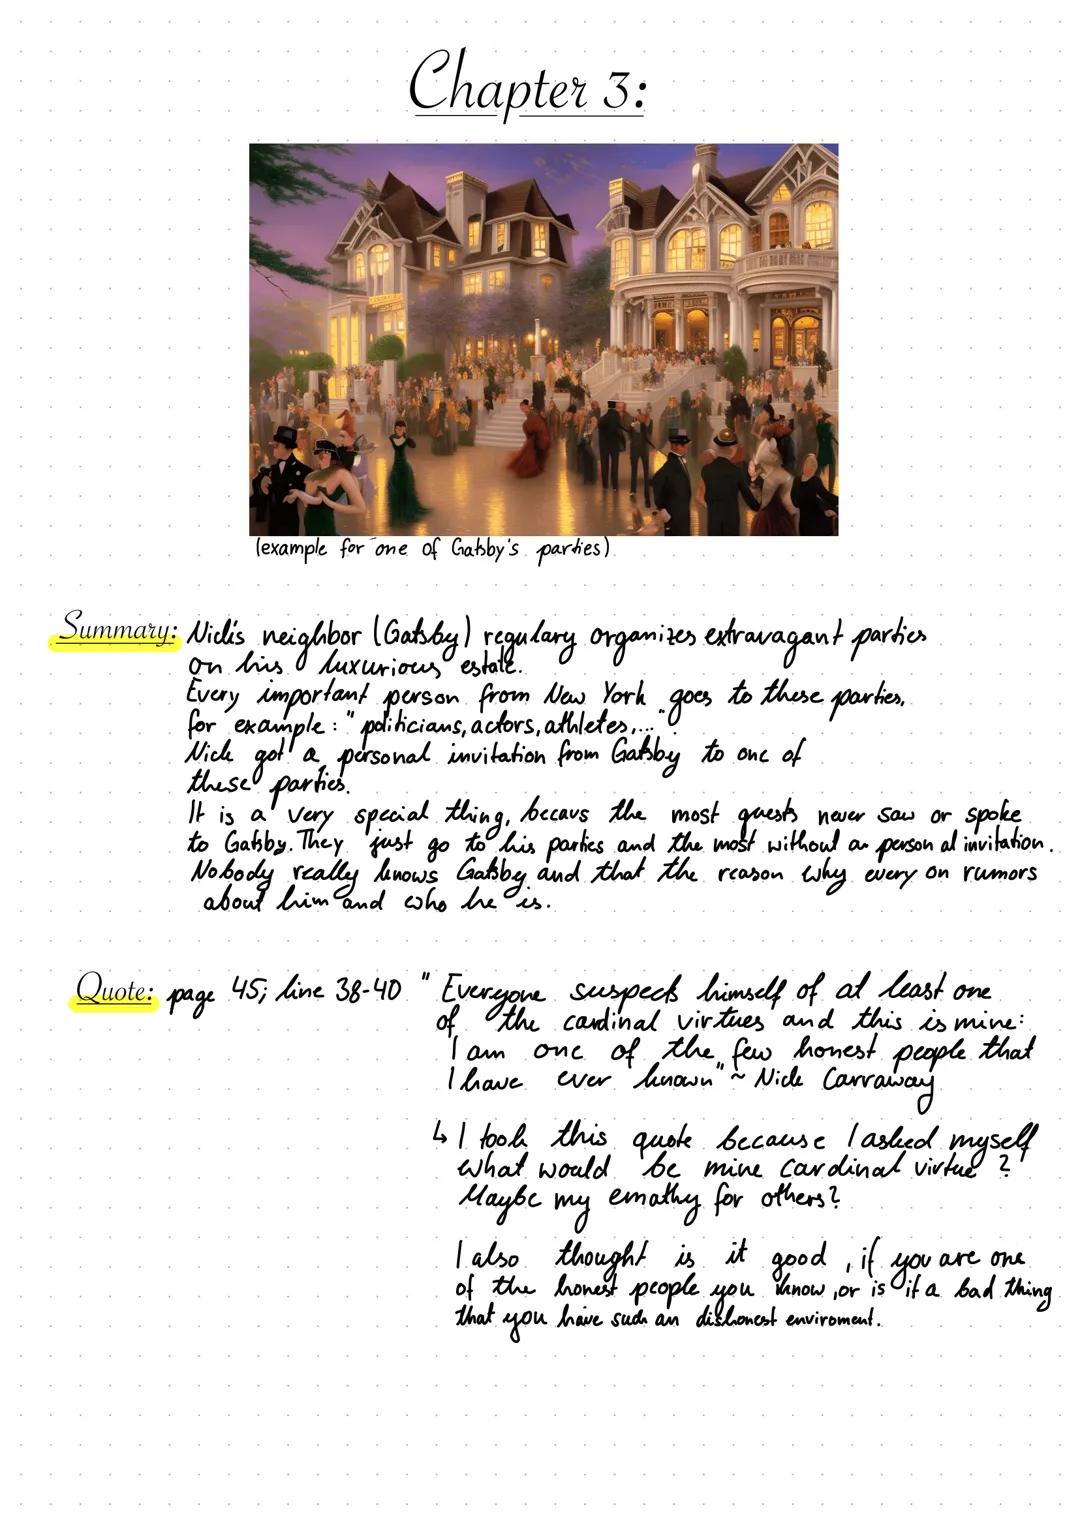 Chapter 3:
(example for one of Gatsby's parties)
Summary: Nick's neighbor (Gatsby) regulary organizes extravagant parties
on his luxurious estate.
Every important person from New York goes to these parties,
for example: "politicians, actors, athletes,..."
Nick got a personal invitation from Gatsby to one of
these parties.
It is a very special thing, becaus the most guests never saw or spoke
to Gatsby. They just go to his parties and the most without an personal invitation.
Nobody really knows Gatsby and that the reason why every on rumors
about him and who he is.
Quote: page 45; line 38-40 "Everyone suspects himself of at least one
of the cardinal virtues and this is mine:
I am one of the few honest people that
I have ever known" ~ Nick Carraway
↳ I took this quote because I asked myself
what would be mine cardinal virtue?
Maybe my emathy for others?
I also thought is it good, if you are one
of the honest people you know, or is it a bad thing
that you have such an dishonest enviroment.